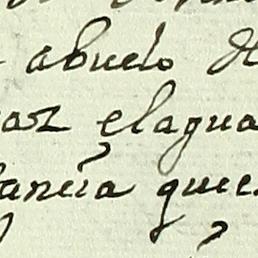 abuelo
az elagua
tancia que